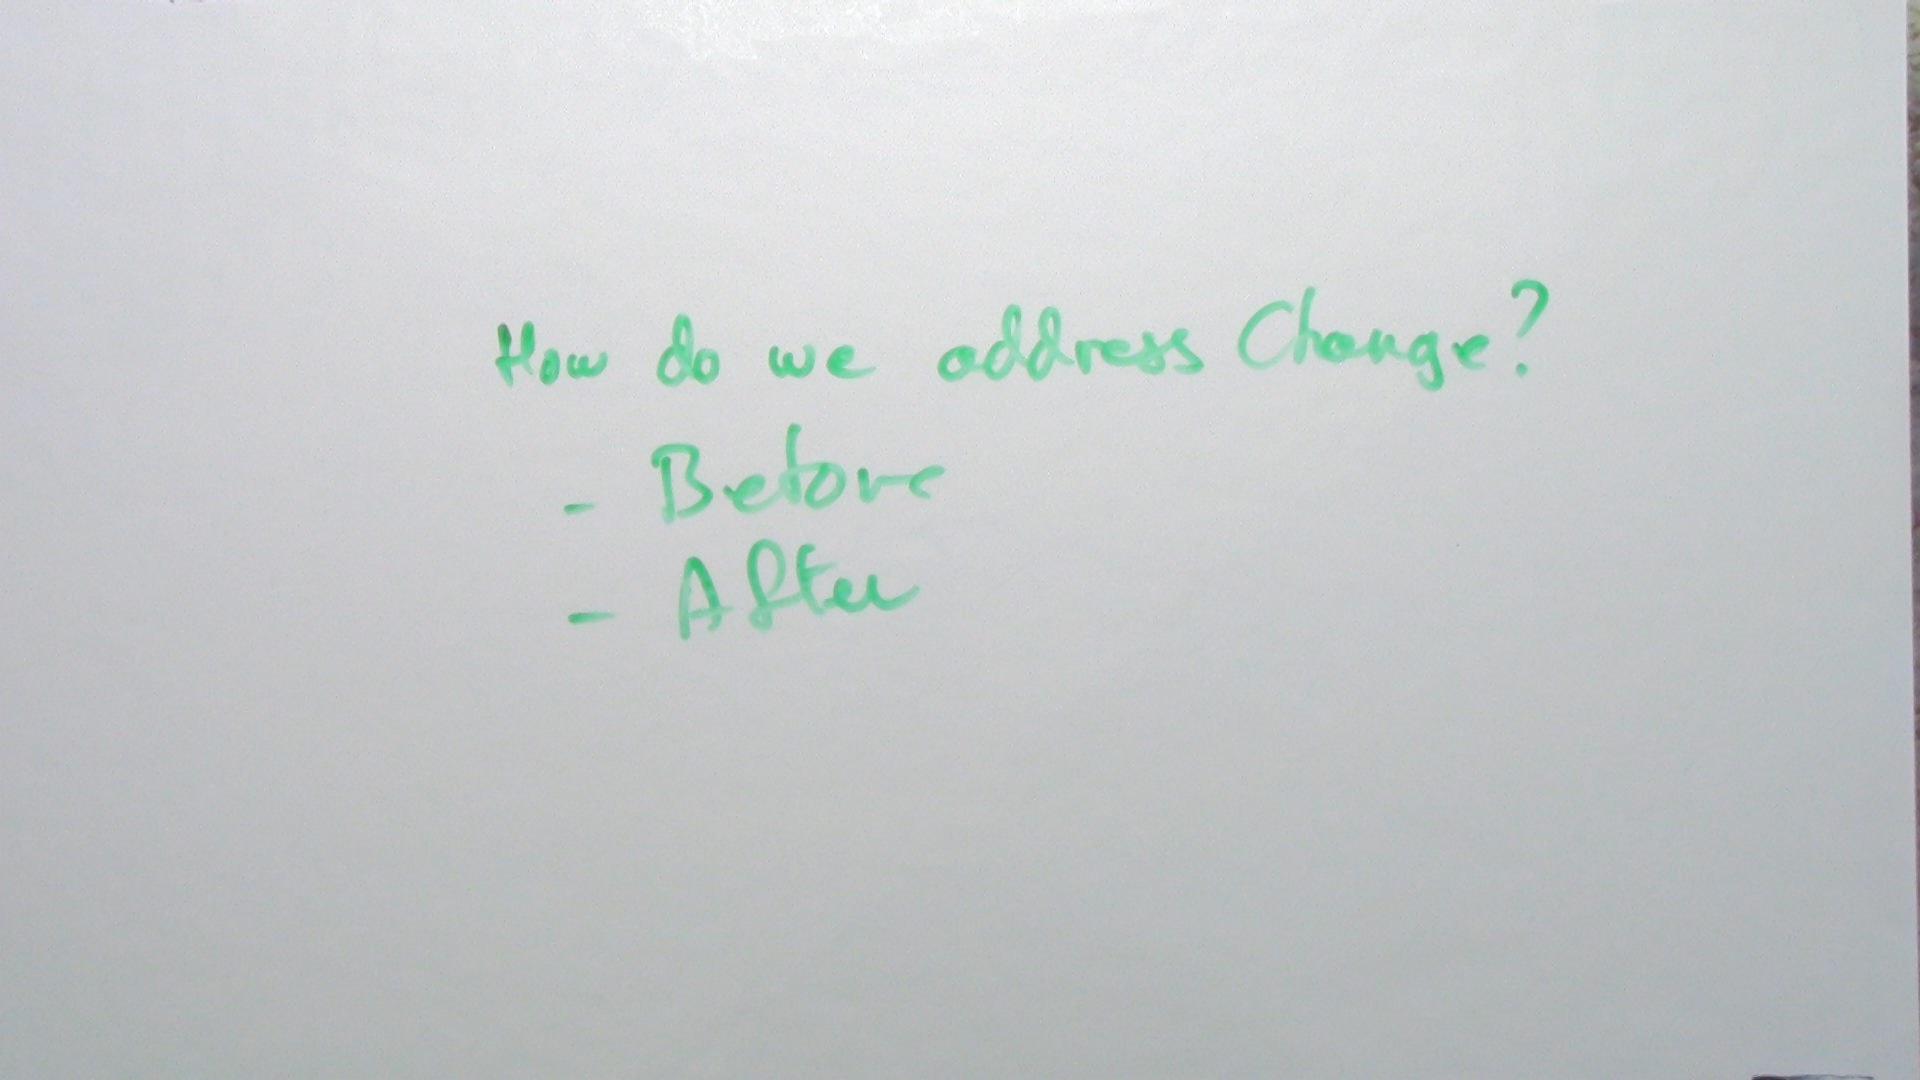 How do we address Change?
- Before
- After